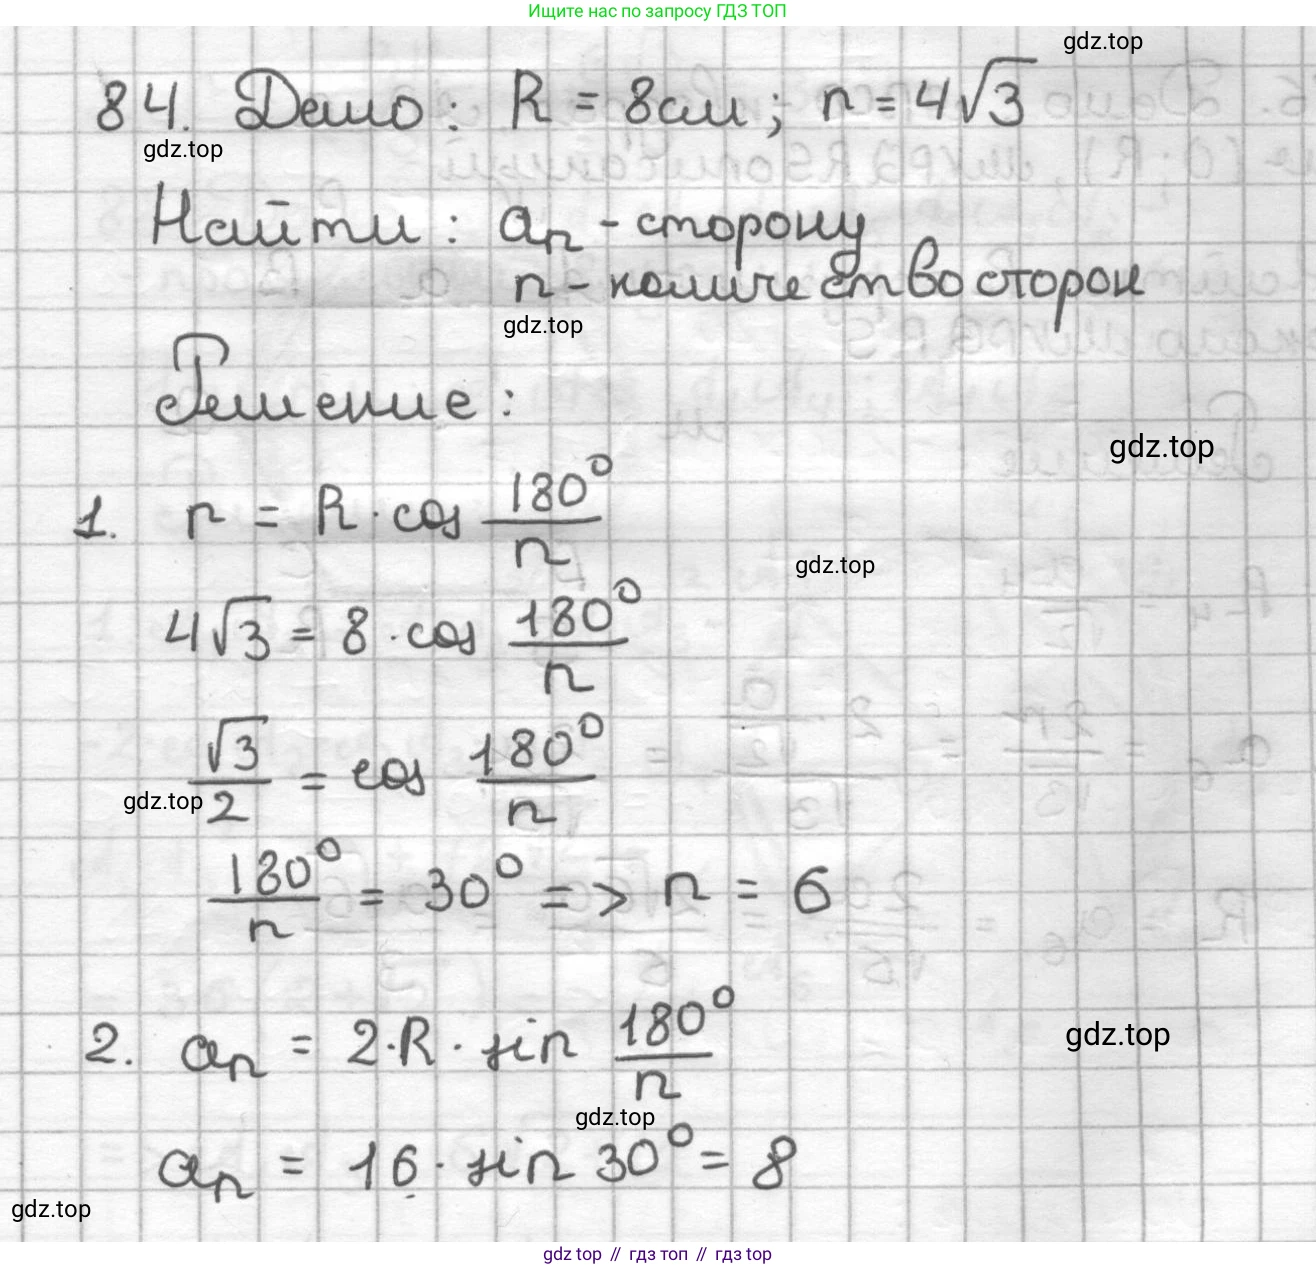 Ищите нас по запросу ГДЗ ТОП
gdz.top
84. Дано: R = 8см; r = 4√3
gdz.top
Найти: aₙ - сторону
n - количество сторон
gdz.top
Решение:
gdz.top
1. r = R · cos 180°/n
gdz.top
4√3 = 8 · cos 180°/n
√3/2 = cos 180°/n
gdz.top
180°/n = 30° => n = 6
2. aₙ = 2 · R · sin 180°/n
gdz.top
gdz.top
aₙ = 16 · sin 30° = 8
gdz.top
gdz top // гдз топ // гдз top